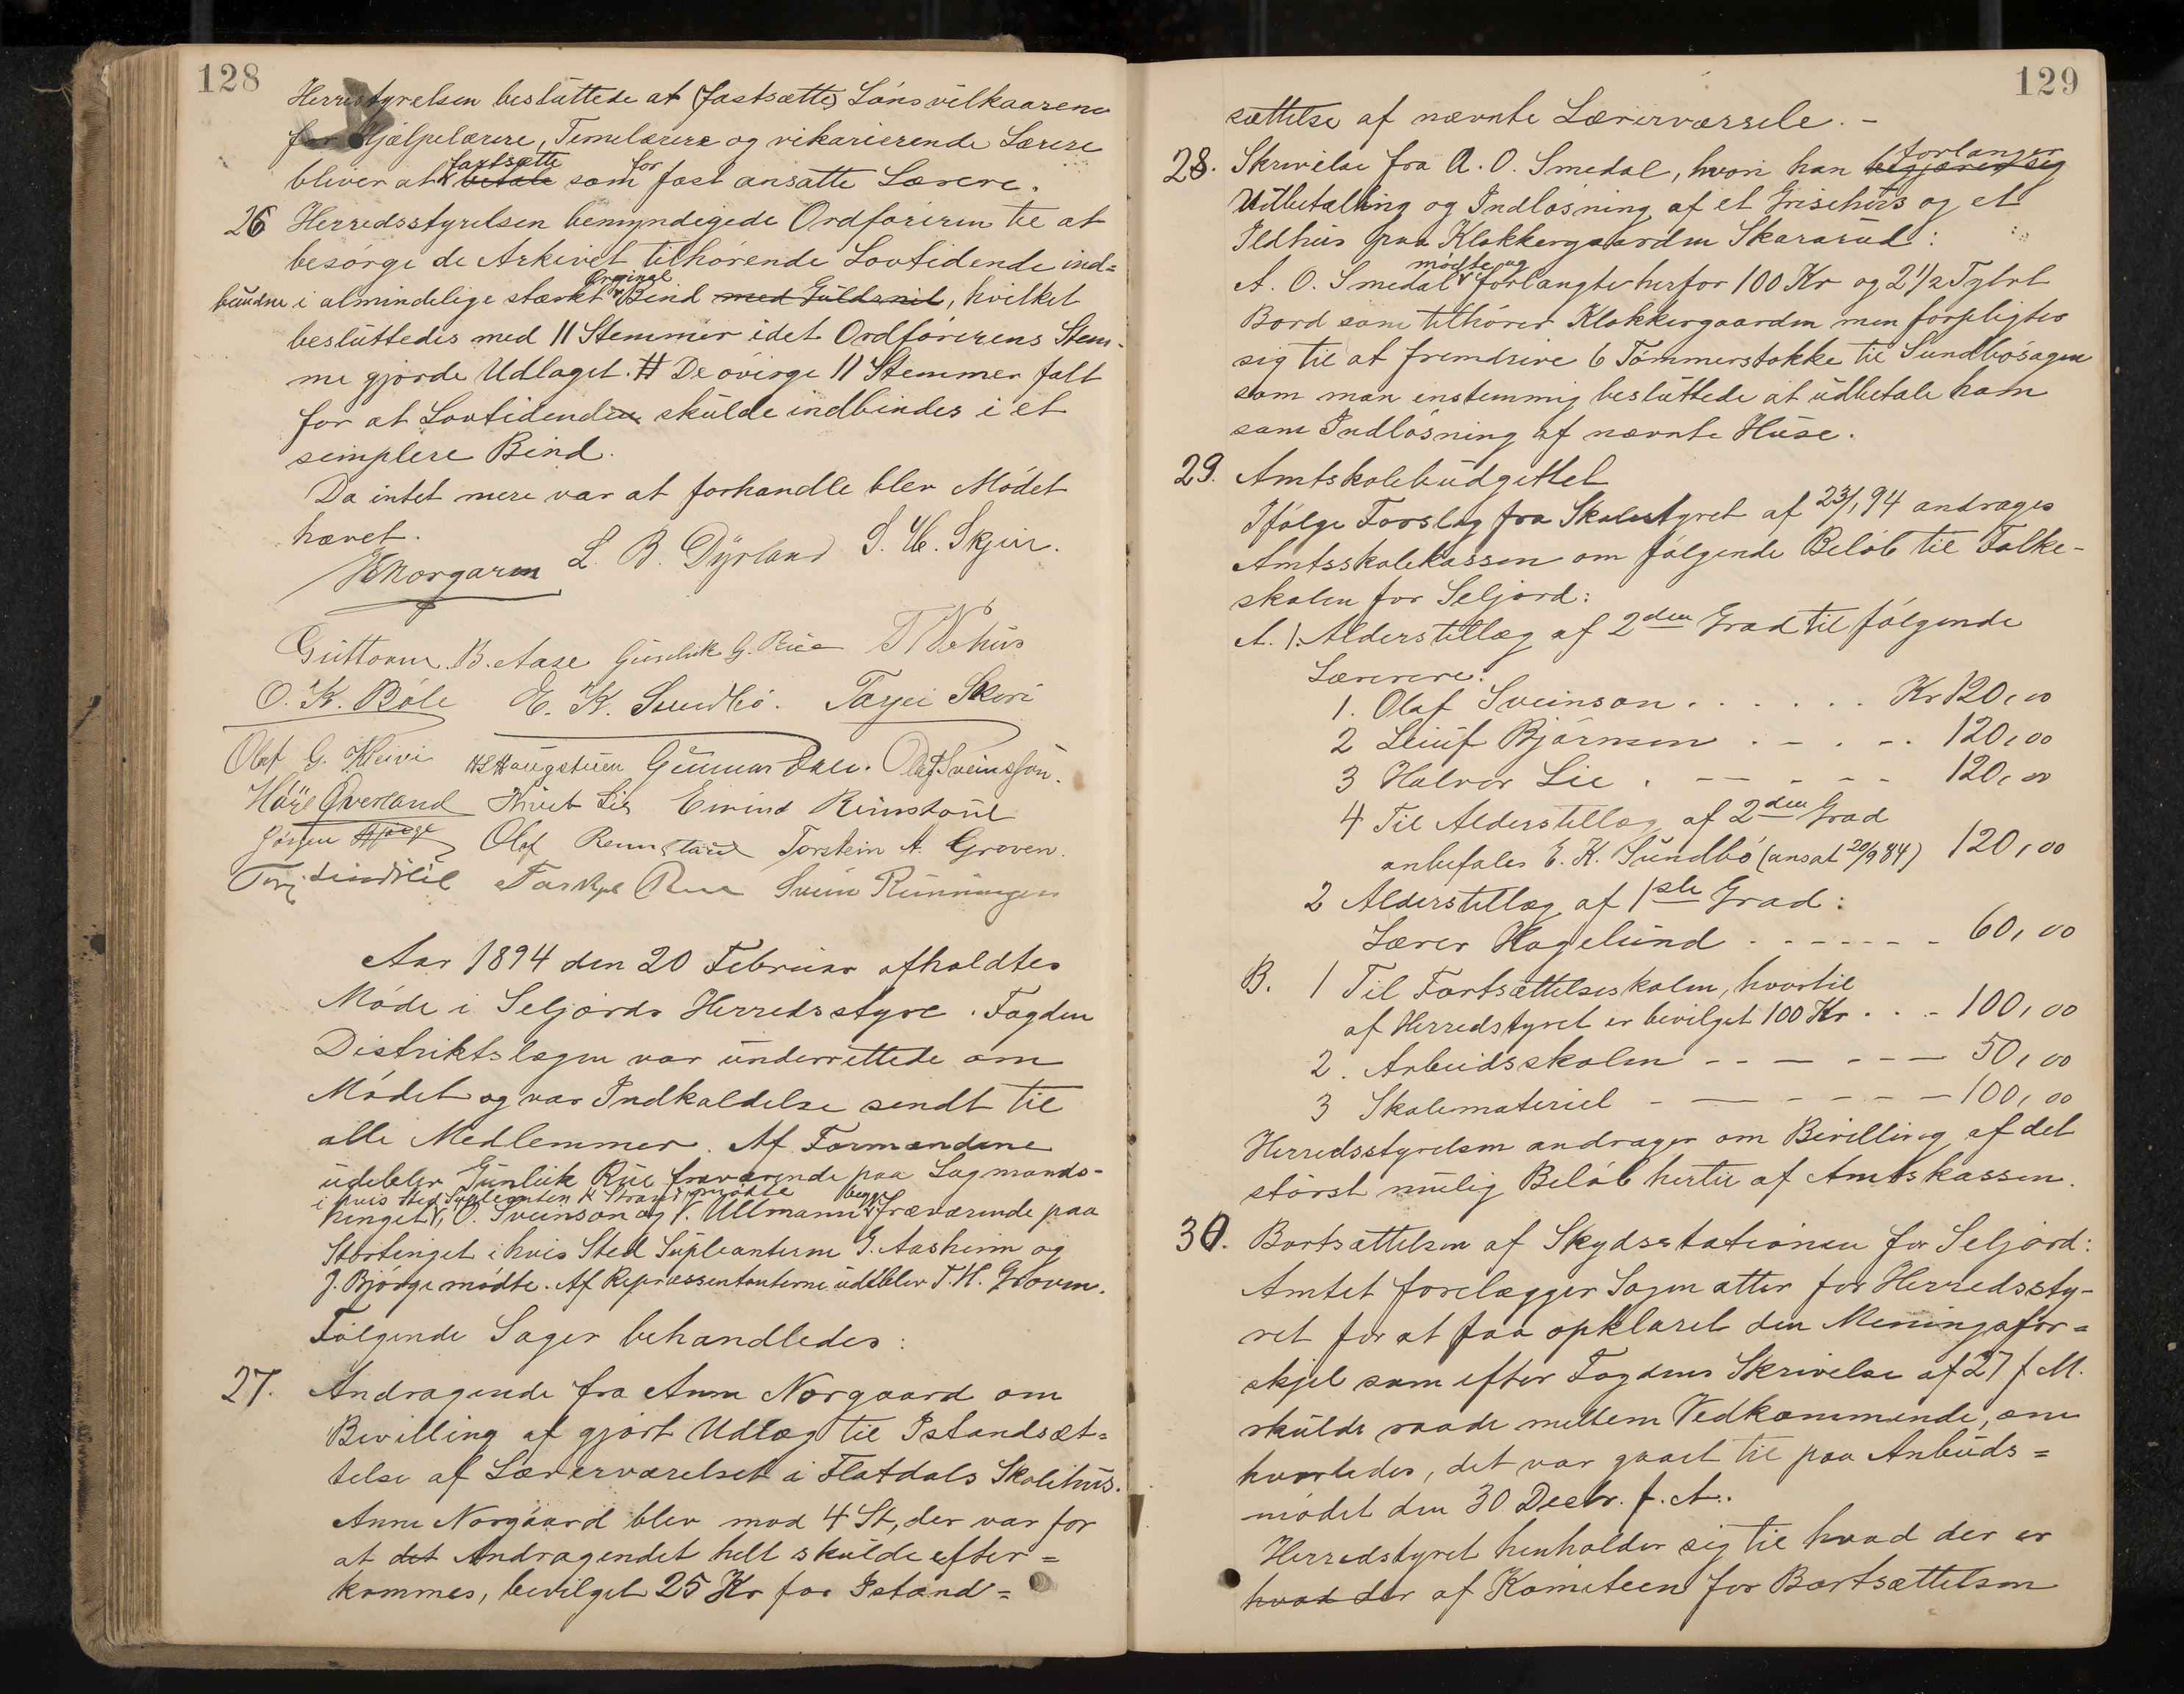 128
Herredstyrelsen besluttede at (fastsætte) Lönsvilkaarene
for Hjælpelærere, Timelærere og vikarierende Lærere
bliver at fastsætte betale som for fast ansatte Lærere.
26 Herredsstyrelsen bemyndigede Ordføreren til at
besørge de Arkivet tilhørende Lovtidende ind=
bundne i almindelige stærkt Orginal Bind med Guldsnit, hvilket
besluttedes med 11 Stemmer idet Ordførerens Stem-
me gjorde Udlaget. # De øvirge 11 Stemmer falt
for at Lovtidenden skulde indbindes i et
simplere Bind.
Da intet mere var at forhandle blev Mödet
hævet.
L. B. Dyrland S. H. Skjeir.
Guttorm B. Aase Gunleik G. Rue T Vehus
O. K. Böle E. K. Sundbö. Tarjei Skori
Olaf G. Kleivi H S Haugstuen Gunnar Dale. Olaf Sveinsson.
Överland Knut Lie Eivind Rinstoul
Jörgen Bjørge Olaf Torstein A. Groven.
Torkjel Rue Svein Rünningen
Aar 1894 den 20 Februar afholdtes
Möde i Seljords Herredsstyre. Fogden
Distriktslægen var underrettede om
Mödet og var Indkaldelse sendt til
alle Medlemmer. Af Formændene
udeblev Gunleik Rue fraværende paa Lagmands-
i hvis Sted Supleanten K Strand mødte begge
tinget, O. Sveinson og V. Ullmann fraværende paa
Stortinget i hvis Sted Supleanterne G. Aasheim og
J. Björge mødte. Af Repræsentanterne udeblev T. H. Groven.
Følgende Sager behandledes:
27. Andragende fra Anne Norgaard om
Bevilling af gjort Udlæg til Istandsæt=
telse af Lærerværelset i Flatdals Skolehus.
Anne Norgaard blev mod 4 St, der var for
at det Andragendet helt skulde efter=
kommes, bevilget 25 Kr for Istand=
129
sættelse af nævnte Lærerværsele. -
28. Skrivelse fra A. O. Smedal, hvori han forlanger begjærer sig
Udbetaling og Indløsning af et Grisehus og et
Ildhus paa Klokkergaarden Skararud:
A. O. Smedal mødte og forlangte herfor 100 Kr og 2 1/2 Tylvt
Bord som tilhører Klokkergaarden men forpligter
sig til at fremdrive 6 Tømmerstokke til Sundbøsagen
som man enstemmig besluttede at udbetale ham
som Indløsning af nævnte Huse.
29. Amtskolebudgettet
Ifølge Forslag fra Skolestyret af 23/1 94 andrages
Amtsskolekassen om følgende Beløb til Folke-
skolen for Seljord:
A. 1. Alderstillæg af 2den Grad til følgende
Lærerere:
1. Olaf Sveinson . . . . . . Kr 120,00
2 Leiuf Björnson . - . - . 120,00
3 Halvor Lie . - - - - - 120,00
4 Til Alderstillæg af 2den Grad
anbefales E. K. Sundbö (ansat 20/9 84) 120,00
2 Alderstillæg af 1ste Grad:
Lærer Hagelund . - - - - - 60,00
B. 1 Til Fortsættelseskolen, hvortil
af Herredstyret er bevilget 100 Kr . . - 100,00
2. Arbeidsskolen - - - - - - 50,00
3 Skolemateriel - - - - - - 100,00
Herredsstyrelsen andrager om Bevilling af det
størst mulig Beløb hertil af Amtskassen.
30. Bortsættelsen af Skydsstationen for Seljord:
Amtet forelægger Sagen atter for Herredssty-
ret for at faa opklaret den Meningsfor=
skjel som efter Fogdens Skrivelse af 27 f. M.
skulde raade mellem Vedkommende, om
hvorledes, det var gaaet til paa Anbuds=
mødet den 30 Decbr. f. A..
Herredstyret henholder sig til hvad der er
hvad der af Komiteen for Bortsættelsen